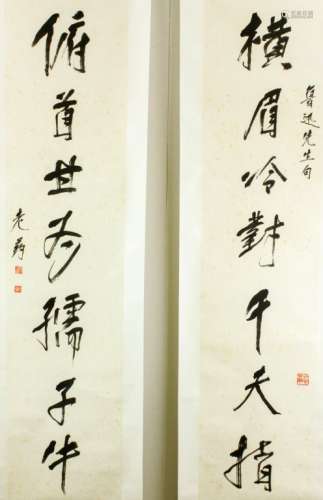 橫眉冷對千夫指
魯迅先生句
俯首甘為孺子牛
老葯